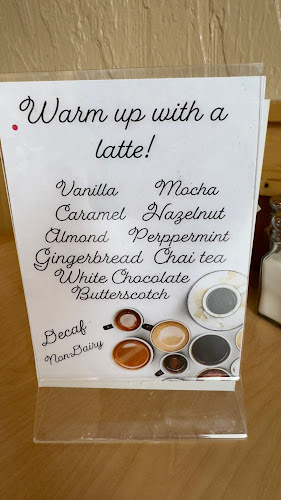 Warm up with a
latte!
Vanilla Mocha
Caramel Hazelnut
Almond Perppermint
Gingerbread Chai tea
White Chocolate
Butterscotch
Decaf
Non Dairy